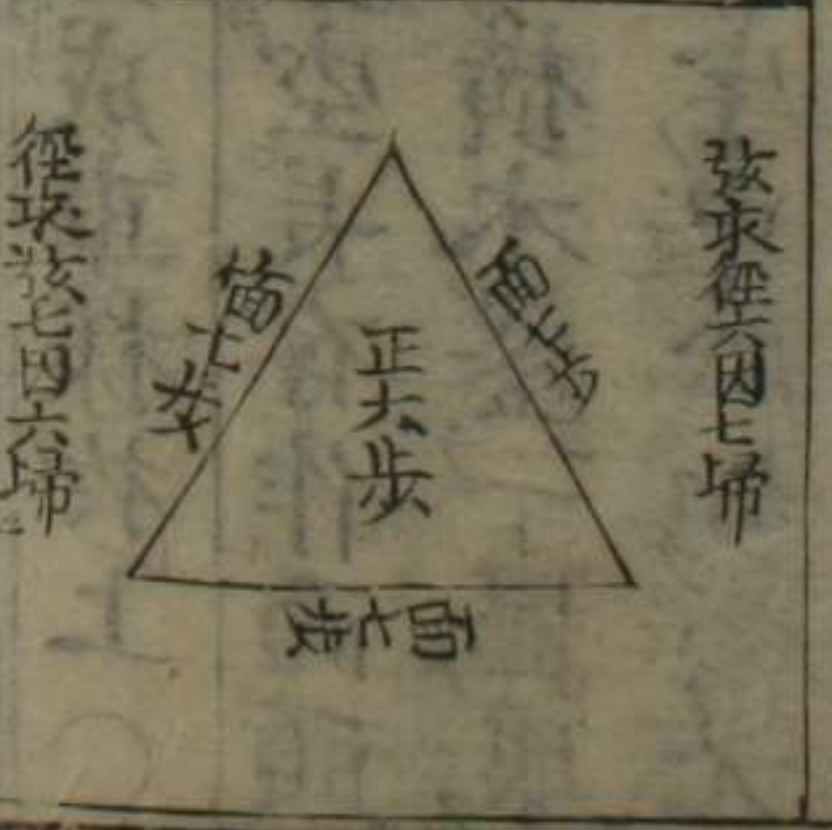 弦求徑六因七埽
面七步
正六步
面七步
面七步
徑求弦七因六埽